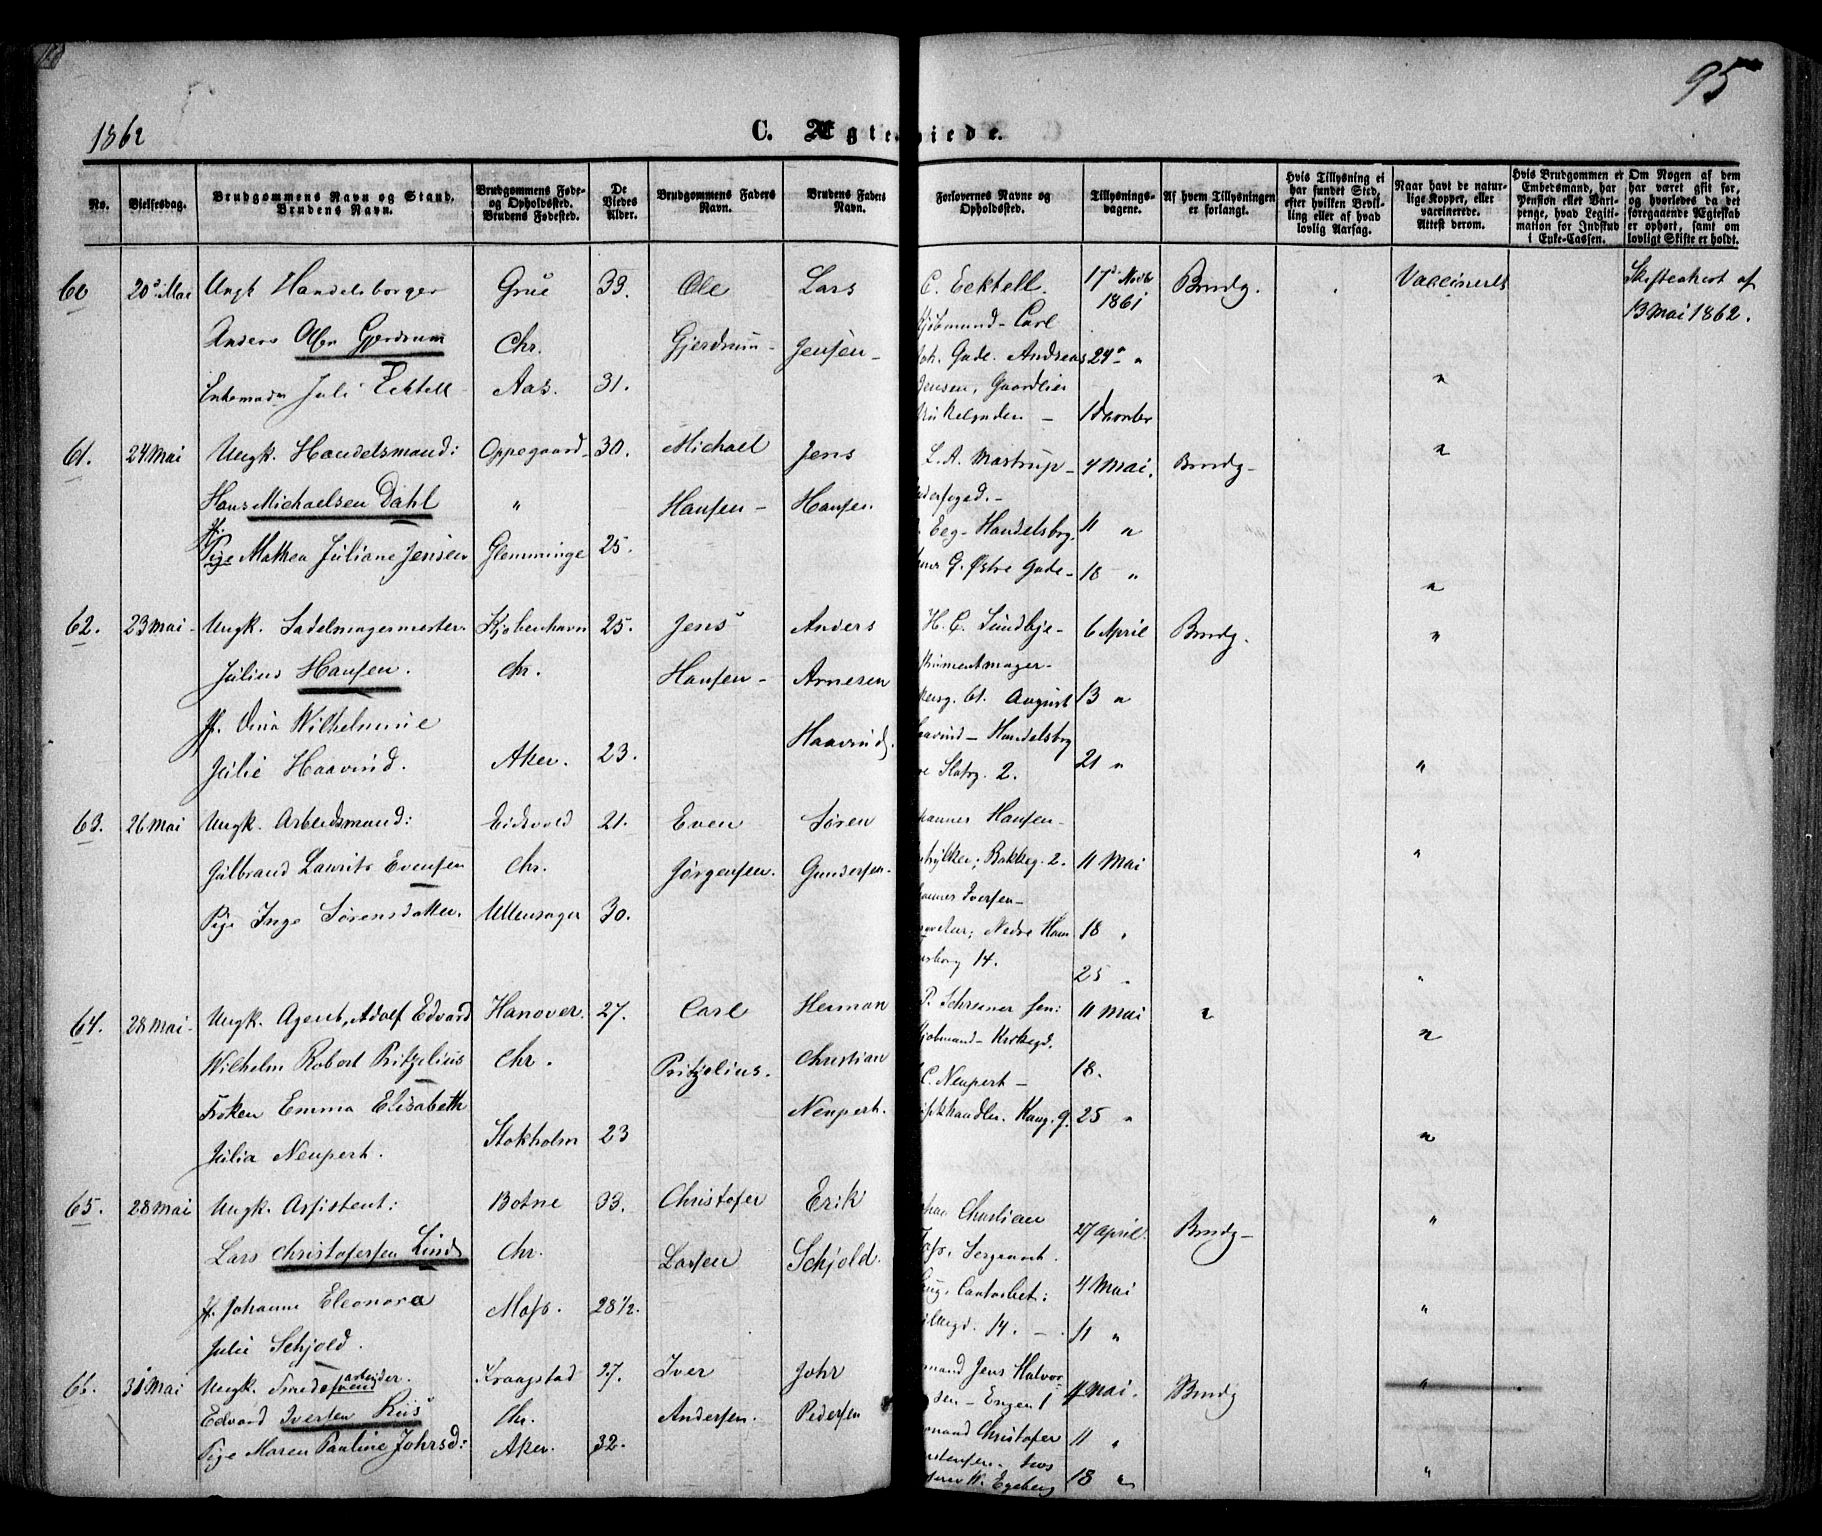 95
1862
C. Ægteviede.
No.
Vielsesdag.
Brudgommens Navn og Stand,
Brudens Navn.
Brudgommens Føde-
og Opholdssted.
Brudens Fødested.
De
Viedes
Alder.
Brudgommens Faders
Navn.
Brudens Faders
Navn.
Forlovernes Navne og
Opholdssted.
Tillysnings-
dagene.
Af hvem Tillysningen
er forlangt.
Hvis Tillysning ei
har fundet Sted,
efter hvilken Bevil-
ling eller af hvad
lovlig Aarsag.
Naar havt de natur-
lige Kopper, eller
vaccinerede.
Attest derom.
Hvis Brudgommen er
Embedsmand, har
Pension eller Vart-
penge, hvad Legiti-
mation for Indskud
i Enke-Cassen.
Om Nogen af dem
har været gift før,
og hvorledes da det
foregaaende Ægteskab
er ophørt, samt om
lovligt Skifte er holdt.
60 20de Mai Ungk Handelsborger Grue 33. Ole Lars C. Ecktell. 17de Novbr 1861 Brudg. Vaccinerede Skifteattest af
13 Mai 1862.
Anders Olsen Gjerdrum Chr. Gjerdrum Jensen Kjøbmand - Carl
Joh. Gade. Andreas 24de "
Enkemadm Juli Ecktell Aas. 31. Jensen, Gaardeier "
1 Decembr
61. 24 Mai Ungk. Handelsmand: Oppegaard 30. Michael Jens L. A. Mastrup 4 Mai. Brudg "
Hans Michaelsen Dahl " Hansen Hansen
Eeg - Handelsbrg. 11 "
Pige Mathea Juliane Jensen Glemminge 25. G. Østre Gade 18 " "
62. 23 Mai Ungk. Sadelmagermester Kjøbenhavn 25. Jens Anders H. C. Lundbye 6 April Brudg. "
Julius Hansen. Chr. Hansen Arnesen strumentmager
61. August 13 "
Jf. Wilhelmine Haavind. aavind - Handelsbrg
Julie Haavind. Aker. 23. Slotsg. 2. 21 " "
63. 26 Mai Ungk. Arbeidsmand: Eidsvold 21. Even Søren hannes Hansen
Gulbrand Laurits Evensen Chr. Jørgensen. Gundersen. Bakkeg. 2. 11 Mai "
hannes Iversen
Pige Inge Sørensdatter. Ullensager 30. Nedre Ham 18 "
rsborg 14. 25 " "
64. 28 Mai Ungk. Agent, Adolf Edvard Hanover. 27. Carl Herman P. Schreiner Sen: 11 Mai " "
Wilhelm Robert Pritzelius Chr. Pritzelius. Christian Kjøbmand - Kirkegd.
C. Neupert 18.
Frøken Emma Elisabeth Neupert. Kong. 9. 25 "
Julia Neupert. Stokholm 23 "
65. 28 Mai Ungk. Assistent: Botne 33. Christofer Erik Christian 27 April. Brudg "
Lars Christofersen Lind Chr. Larsen Schjold. Sergeant.
4 Mai
Jf. Johanne Eleonora Moss. 28 1/2. 14. 11 " "
Julie Schjold.
66. 31 Mai Ungk. Smedearbeider. Kraagstad 27. Iver Johr mand Jens Halvor 4 Mai. Brudg "
svend
Edvard Iversen Riis Chr. Andersen. Pedersen sen - Engen 1
Pige Maren Pauline Johrsd: Aker. 32. mand Christofer 11 "
W. Egeberg 18 " "